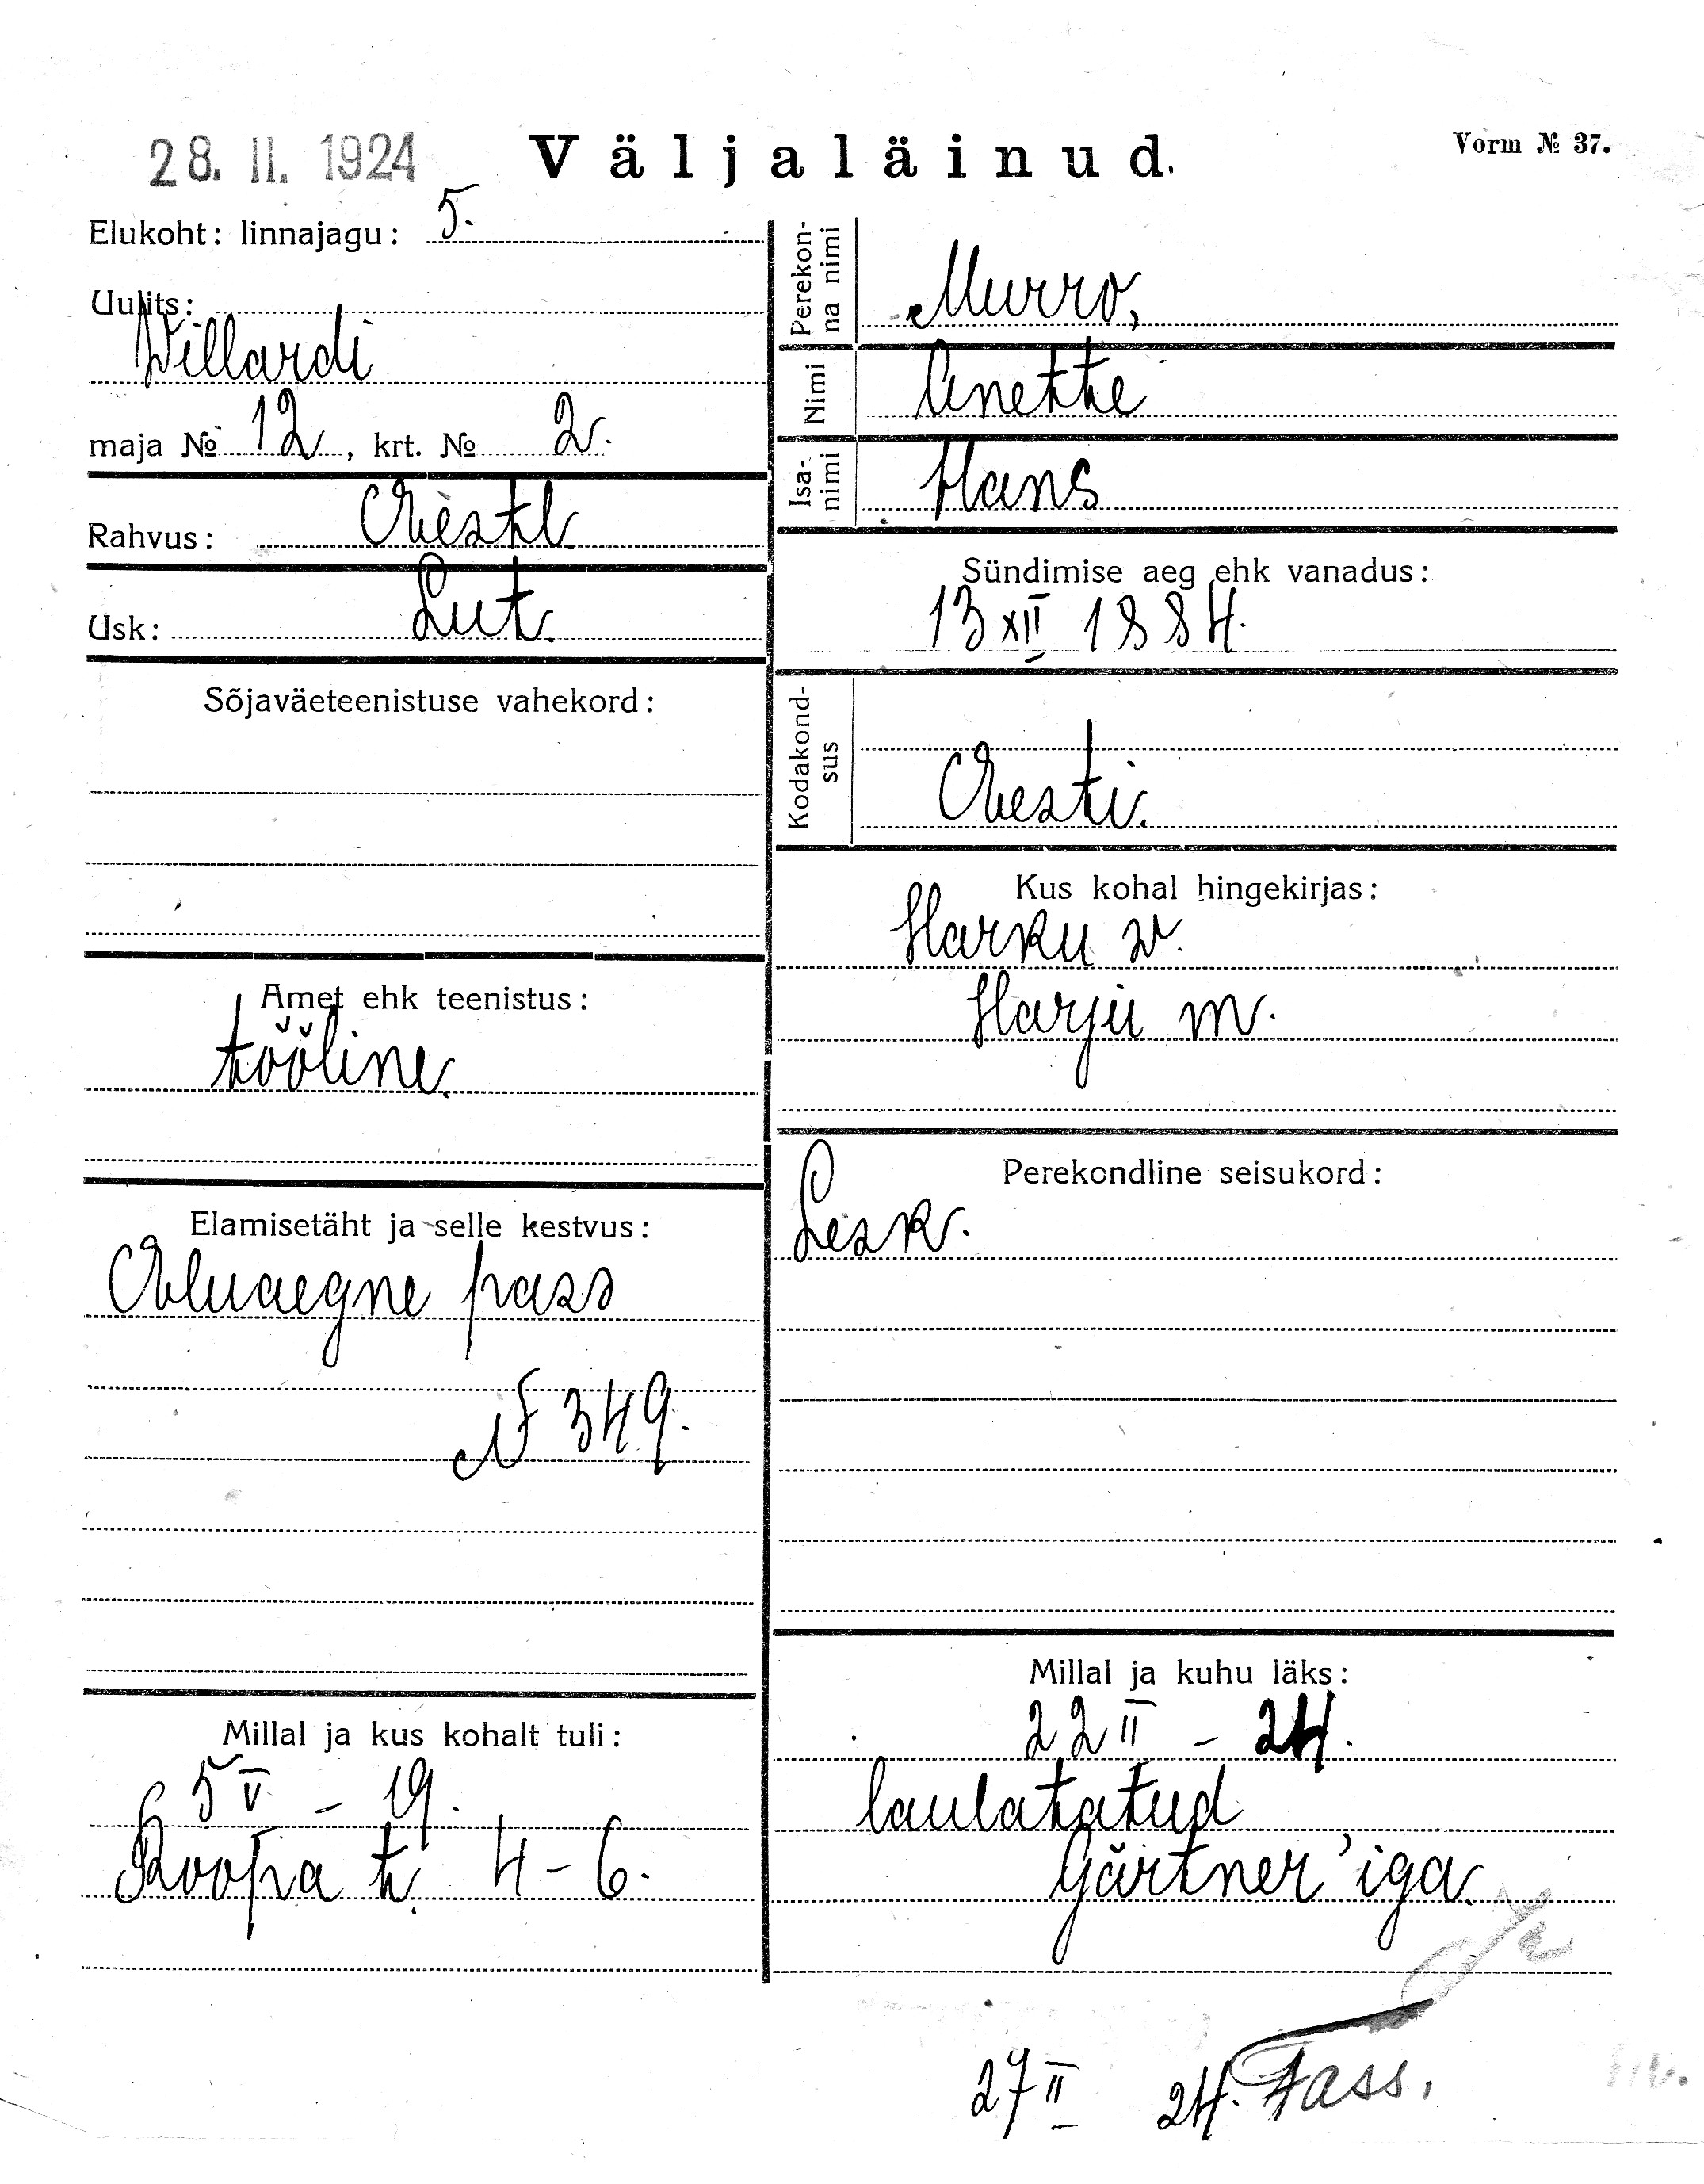 28. II. 1924
Väljaläinud.
Vorm № 37.
Elukoht: linnajagu: 5.
Uulits:
Willardi
maja № 12, krt. № 2.
Rahvus: Eestl.
Usk: Lut.
Sõjaväeteenistuse vahekord:
Amet ehk teenistus:
tööline.
Elamisetäht ja selle kestvus:
Eluaegne pass
N 349.
Millal ja kus kohalt tuli:
5 V – 19.
Koopa t. 4-6.
Perekonna nimi
Murro,
Nimi
Anette
Isanimi
Hans
Sündimise aeg ehk vanadus:
13 XII 1884.
Kodakondsus
Eesti.
Kus kohal hingekirjas:
Harku v.
Harju m.
Perekondline seisukord:
Lesk.
Millal ja kuhu läks:
22 II – 24.
laulatatud
Gärtner'iga.
27 II 24.